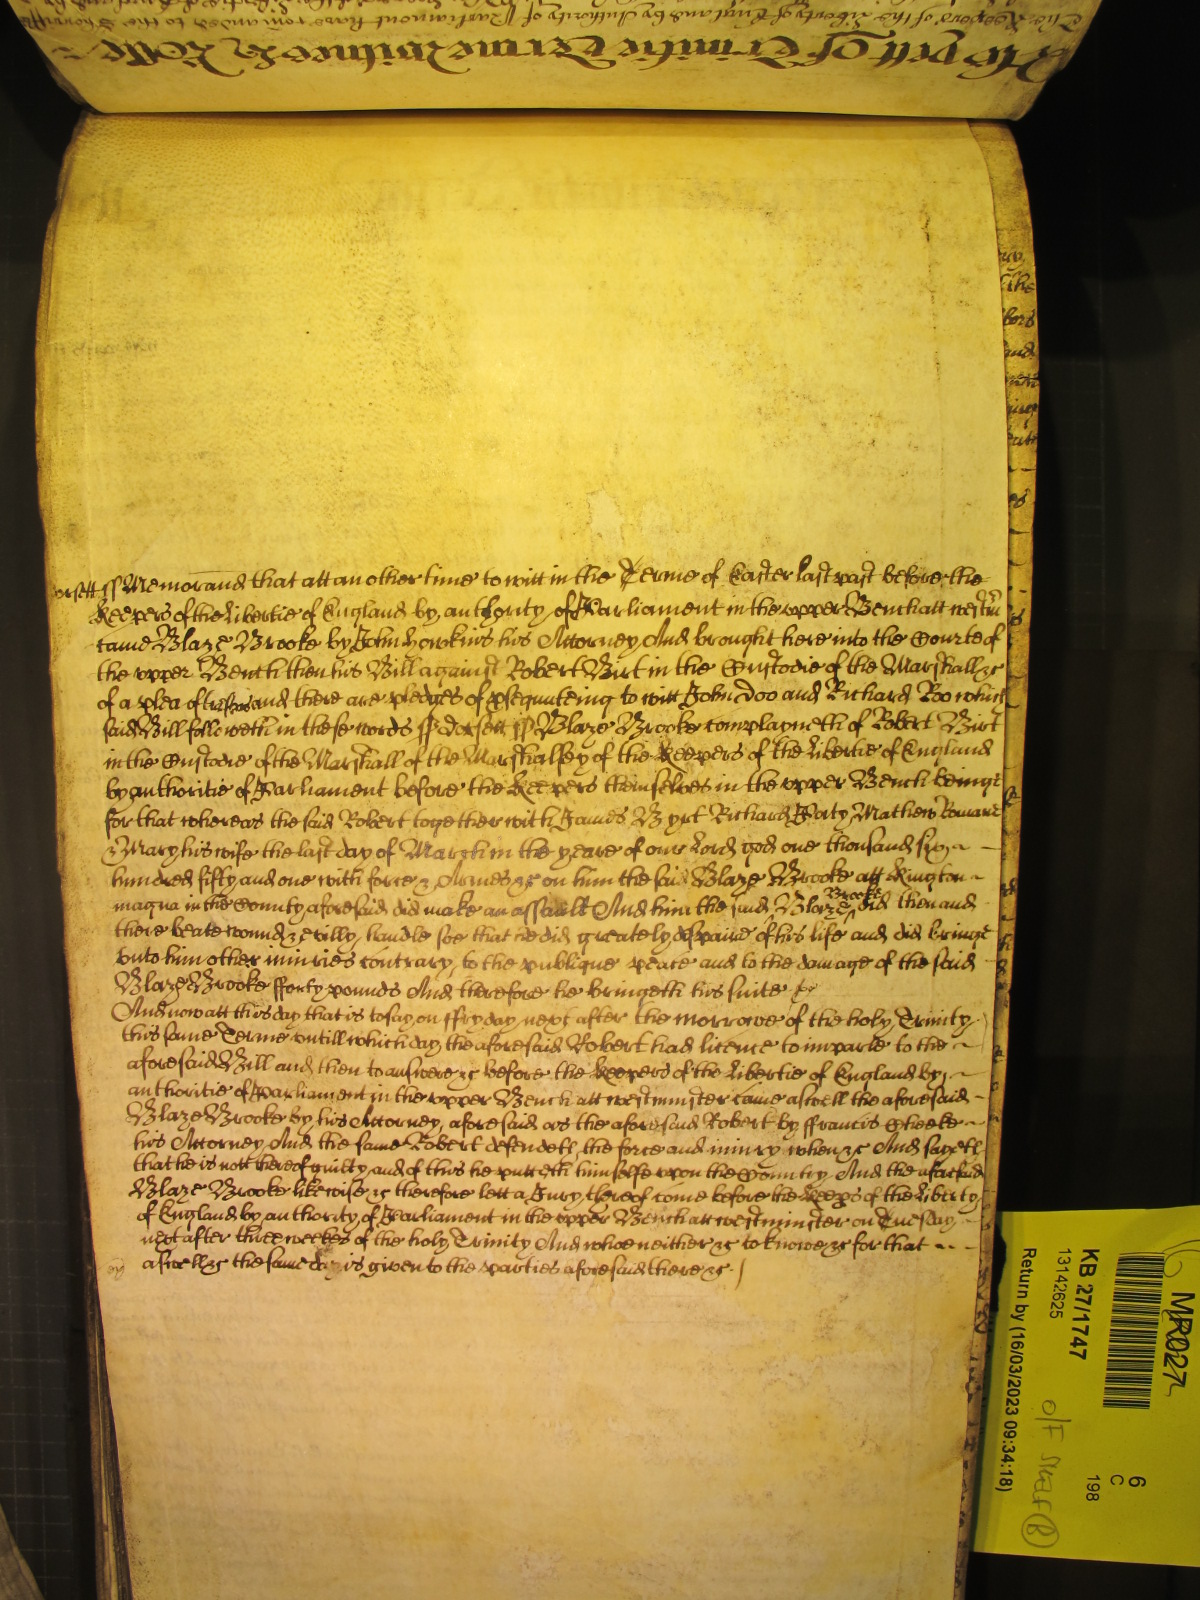 The Keepers of the Liberty of England by Authority of Parliament have comanded to the Shereife
As yett of Trinitie Terme witnes H Rolle
orsett ss Memorand that att an other time to witt in the Terme of Easter last past before the
Keepers of the Libertie of England by authority of Parliament in the upper Bench att Westm
came Blaze Brooke by John Hoskins his Attorney And brought here into the Courte of
the upper Bench then his Bill against Robert Birt in the Custodie of the Marshall &c
of a plea of trespas and there are pledges of psequuteing to witt John Doo and Richard Roo which
said Bill followeth in these words ss Dorsett ss Blaze Brooke complayneth of Robert Birt
in the Custodie of the Marshall of the Marshalsey of the Keepers of the Libertie of England
by authoritie of Parliament before the Keepers themselves in the upper Bench beinge
for that whereas the said Robert together with James Byrt Richard Forty Mathew
& Mary his wife the last day of March in the yeare of our Lord god one thousand six
hundred fifty and one with force & Armes &c on him the said Blaze Brooke att Kington
magna in the County aforesaid did make an assault And him the said Blaze Brooke did then and
there beate wound & evilly handle soe that he did greately dispaire of his life and did bringe
unto him other iniuries contrary to the publique peace and to the damage of the said
Blaze Brooke fforty pounds And therefore he bringeth his suite &c
And now att this day that is to say on ffryday next after the morrowe of the holy Trinity
this same Terme untill which day the aforesaid Robert had licence to imparle to the
aforesaid Bill and then to answere &c before the Keepers of the Libertie of England by
authoritie of Parliament in the upper Bench att westminster came aswell the aforesaid
Blaze Brooke by his Attorney aforesaid as the aforesaid Robert by ffrancis Cheeke
his Attorney And the same Robert defendeth the force and iniury when &c And sayeth
that he is nott thereof guilty and of this he putteth himselfe upon the Country And the aforesaid
Blaze Brooke likewise &c therefore lett a Jury thereof come before the Keeps of the Liberty
of England by authority of Parliament in the upper Bench att westminster on Tuesday
next after three weekes of the holy Trinity And whoe neither &c to knowe &c for that
aswell &c the same day is given to the parties aforesaid there &c
MR027
6
C
198
KB 27/1747
13142625
Return by (16/03/2023 09:34:18)